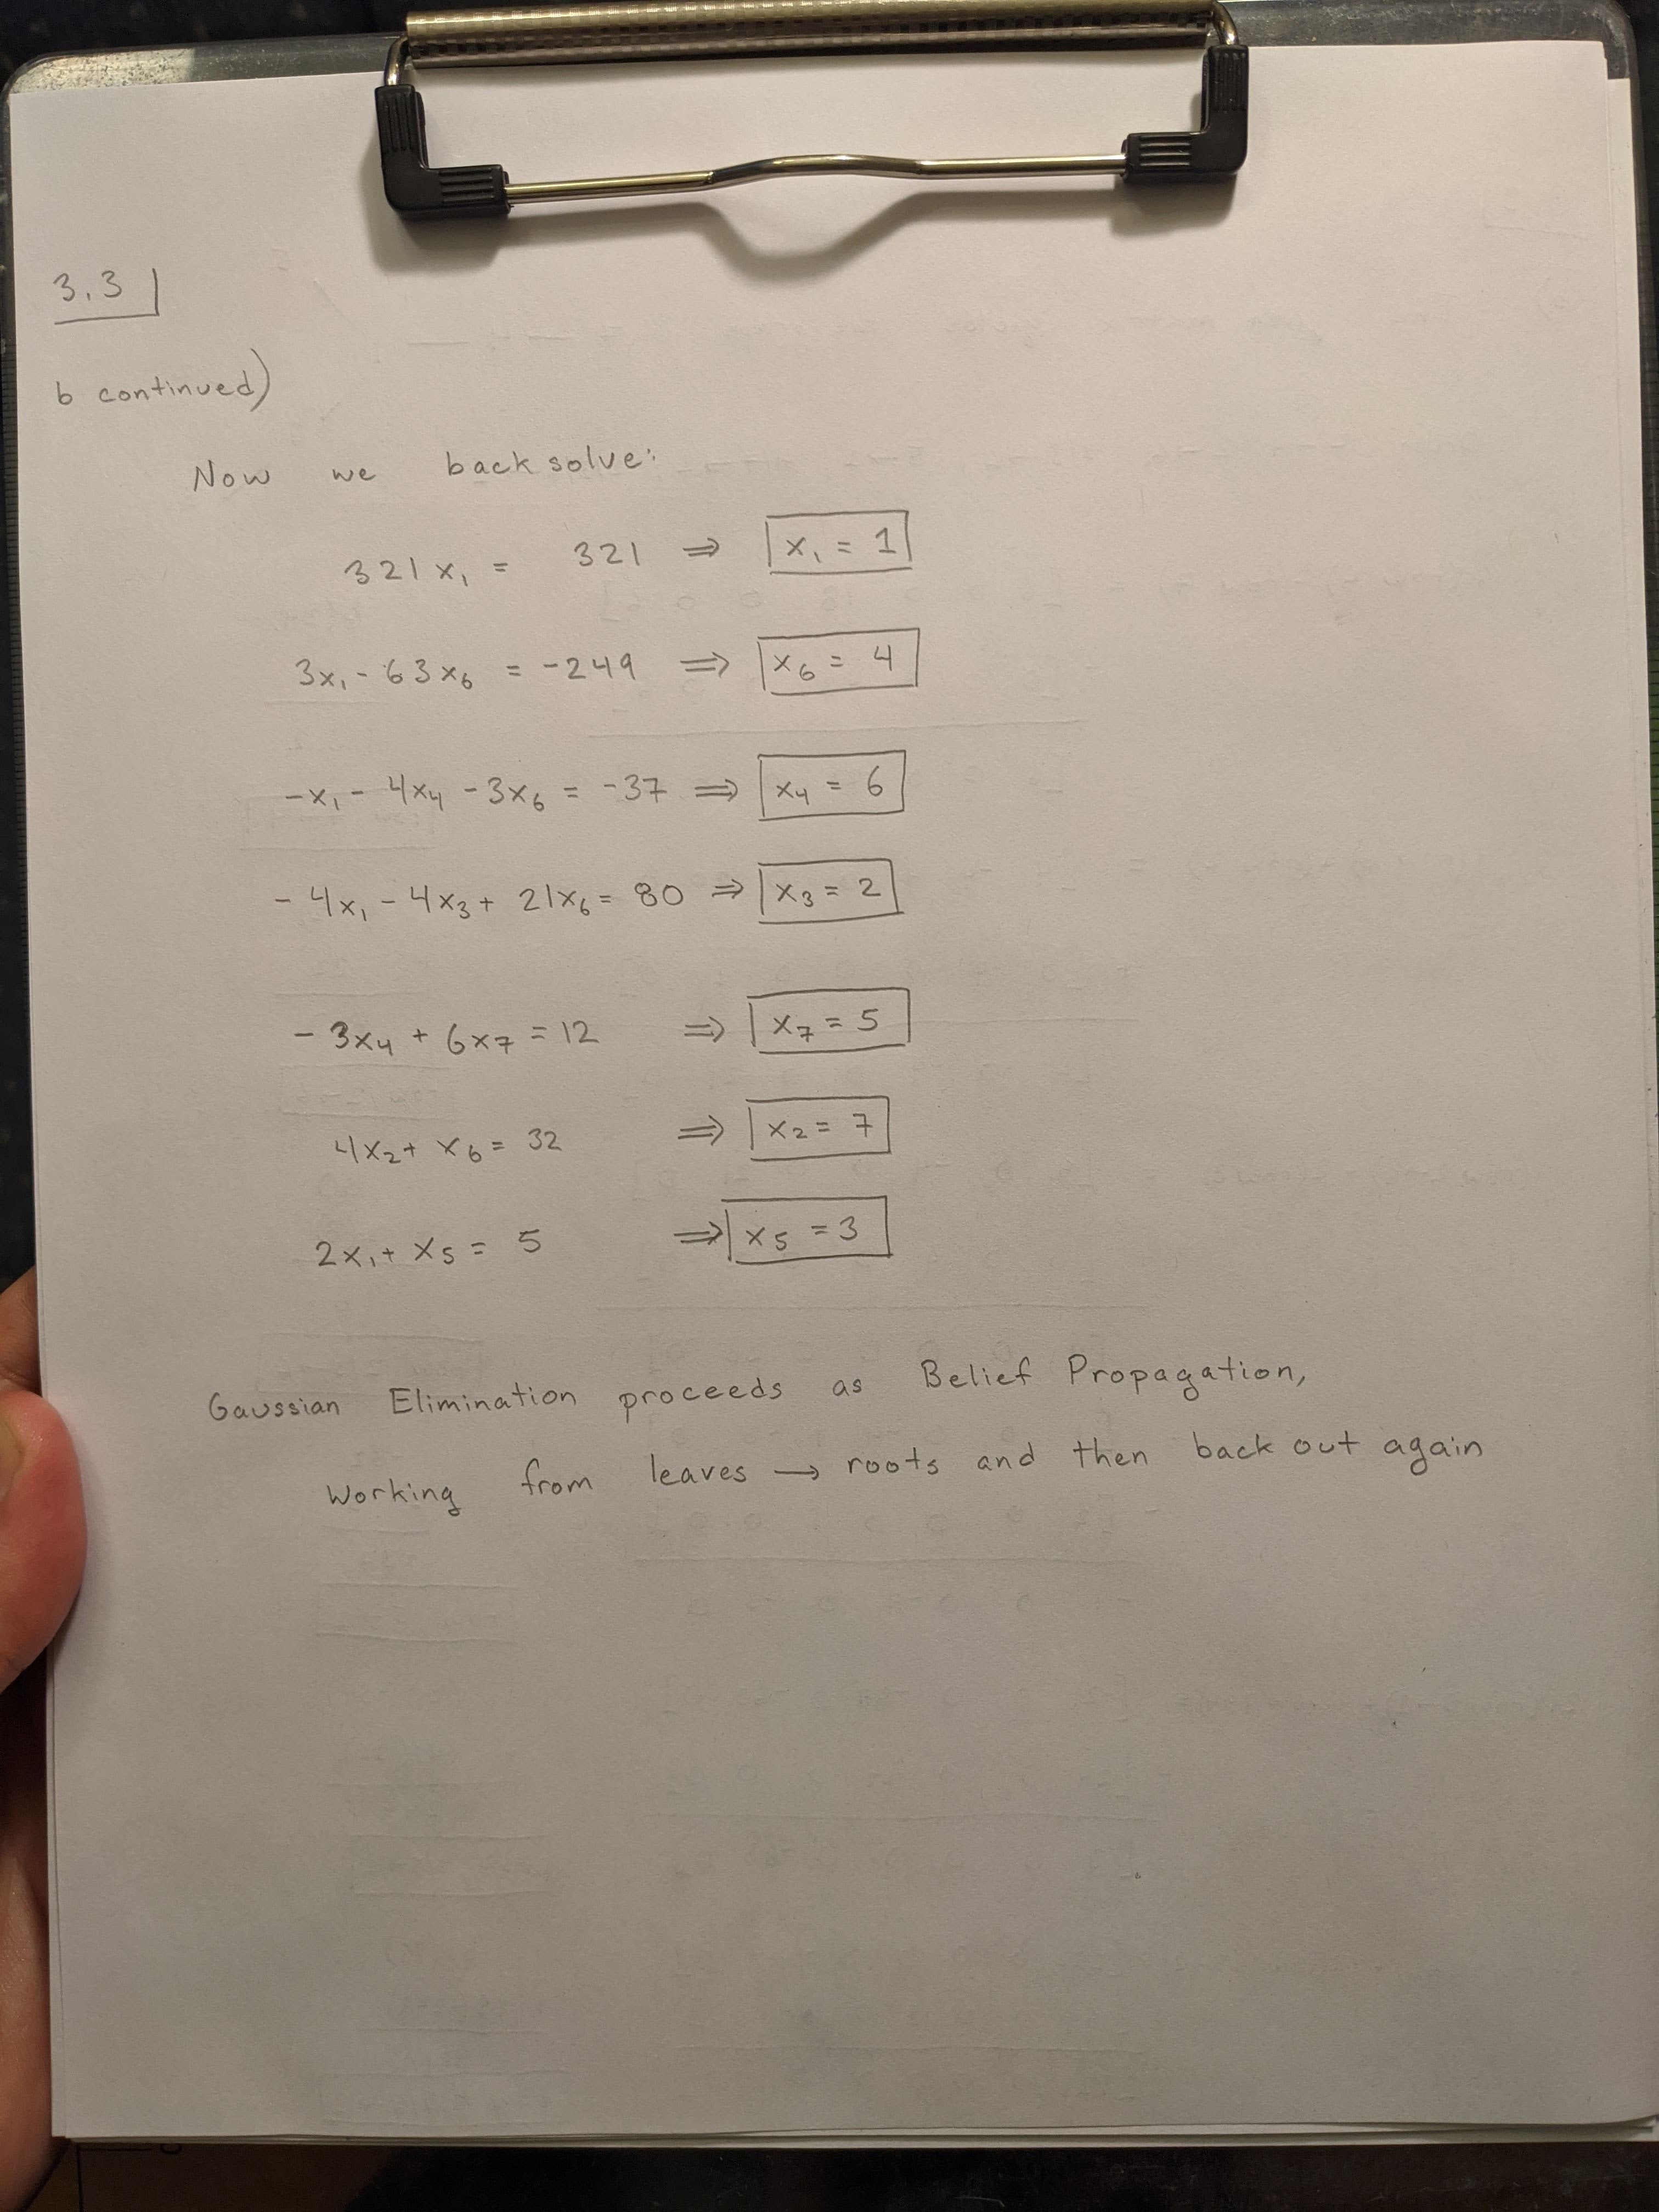 3.3
b continued)
Now we back solve:
321x₁ = 321 ⇒ x₁ = 1
3x₁ - 63x₆ = -249 ⇒ x₆ = 4
-x₁ - 4x₄ - 3x₆ = -37 ⇒ x₄ = 6
- 4x₁ - 4x₃ + 21x₆ = 80 ⇒ x₃ = 2
- 3x₄ + 6x₇ = 12 ⇒ x₇ = 5
4x₂ + x₆ = 32 ⇒ x₂ = 7
2x₁ + x₅ = 5 ⇒ x₅ = 3
Gaussian Elimination proceeds as Belief Propagation,
working from leaves → roots and then back out again